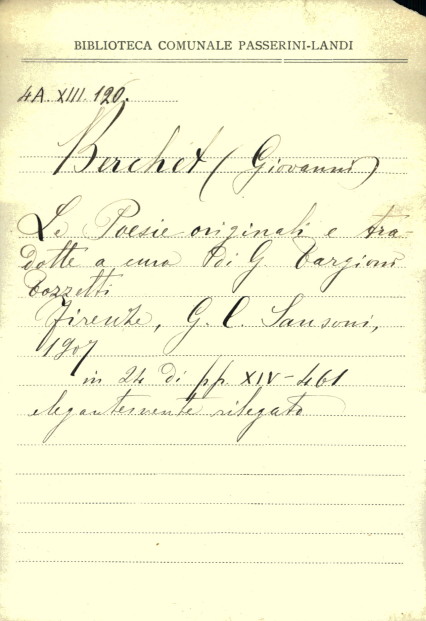 BIBLIOTECA COMUNALE PASSERINI-LANDI
4A. XIII. 120.
Berchet (Giovanni)
Le Poesie originali e tra-
dotte a cura di G. Targioni
Tozzetti
Firenze, G. C. Sansoni,
1907
in 24 di pp. XIV-461
elegantemente rilegato